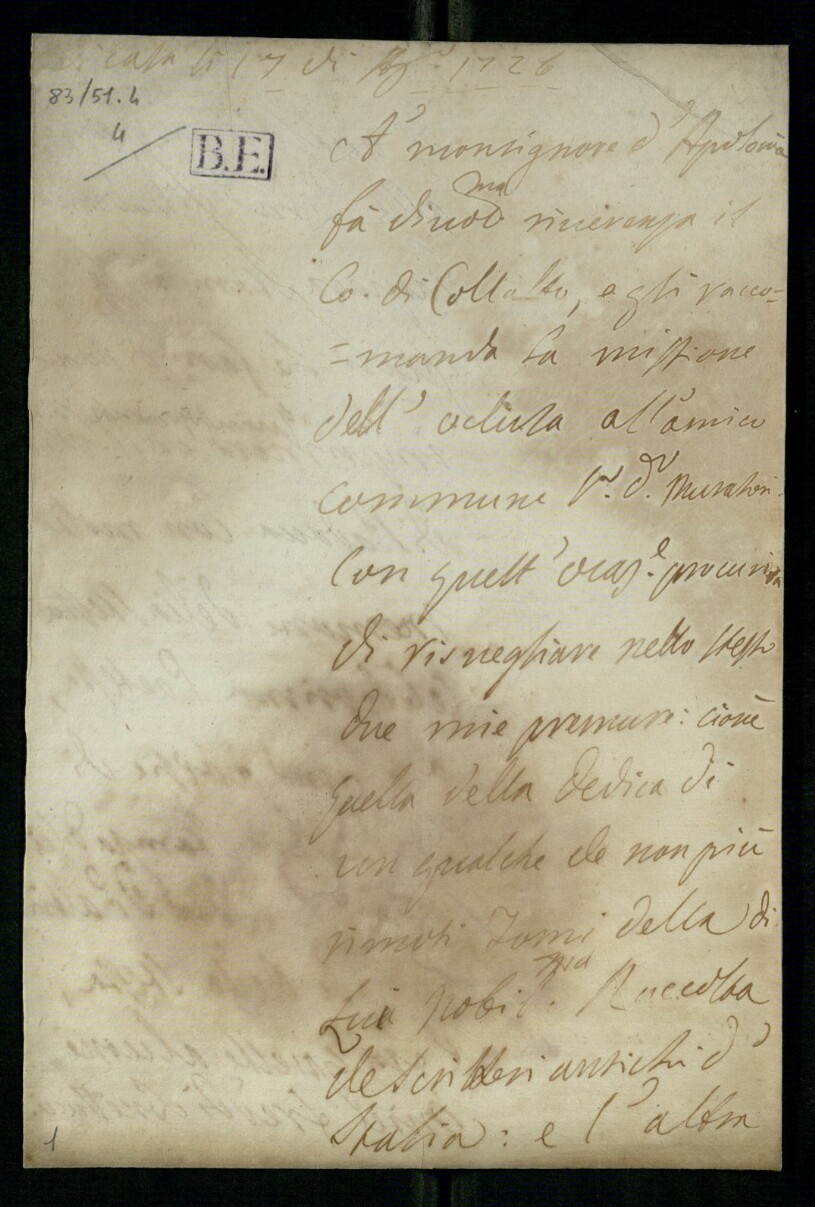 di casa li 17 di Ag.º 1726
83/51.4
4
B.E.
A' monsignore d'Apolonia
fà divot.ma riverenza il
Co. di Collalto, e gli racco=
=manda la missione
dell' acclusa all'amico
commune S.r D.r Muratori.
Con quest' occas.e procurerà
di risvegliare nello stesso
due mie premure: ciouè
quella della Dedica di
un qualche de non più
rimoti Tomi della di
Lui nobil.ma Raccolta
de Scrittori antichi d'
Italia: e l' altra
1